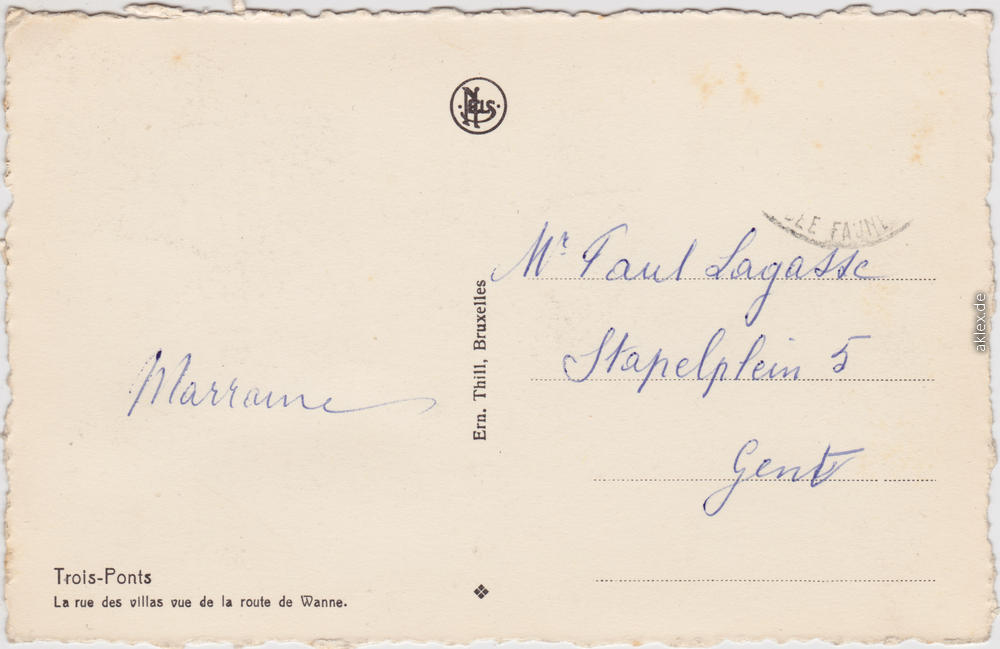 NELS
Marraine
Trois-Ponts
La rue des villas vue de la route de Wanne.
Ern. Thill, Bruxelles
Mr Paul Lagasse
Stapelplein 5
Gent
aklex.de